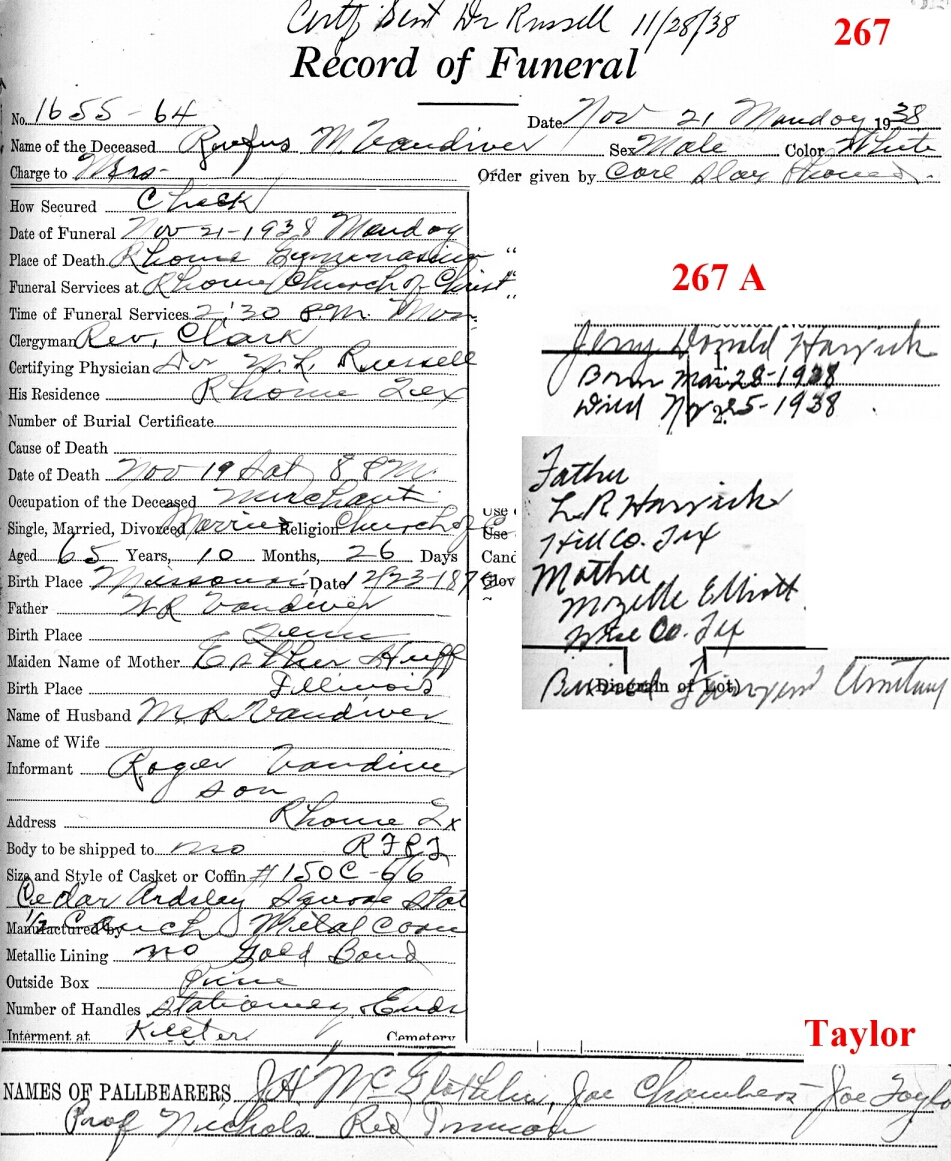 Certf Sent Dr Russell 11/28/38
267
Record of Funeral
No. 1655-64
Date Nov 21 Monday 1938
Name of the Deceased Rufus M. Vandiver Sex Male Color White
Charge to Mrs. Order given by Carl
How Secured Check
Date of Funeral Nov 21-1938 Monday
Place of Death Rhome Gymnasium "
Funeral Services at Rhome Church of Christ "
Time of Funeral Services 2:30 PM. Mon "
Clergyman Rev. Clark
Certifying Physician Dr W.L. Russell
His Residence Rhome Tex
Number of Burial Certificate
Cause of Death
Date of Death Nov 19 Sat 8 PM.
Occupation of the Deceased Merchant
Single, Married, Divorced Married Religion Church of C
Aged 65 Years, 10 Months, 26 Days
Birth Place Missouri Date 12/23-187
Father W R Vandiver
Birth Place Tenn
Maiden Name of Mother Esther Huff
Birth Place Illinois
Name of Husband M R Vandiver
Name of Wife
Informant Roger Vandiver
son
Address Rhome Tx
Body to be shipped to no
Size and Style of Casket or Coffin # 150C-6/6
Cedar Ardsley Square
Manufactured by 1/2 Couch Metal
Metallic Lining no Gold Bond
Outside Box Pine
Number of Handles Stationery Ends
Interment at Keeter Cemetery
267 A
Jerry Donald Harwick
Born Mar 28-1938
Died Nov 25-1938
2.
Father
L R Harwick
Hill Co. Tex
Mother
Mozelle Elliott
Wise Co. Tex
(Diagram of Lot)
Buried Cemetery
Use
Use
Cand
Glov
Taylor
NAMES OF PALLBEARERS J H McGlothlin, Joe Chambers- Joe Taylo
Prof Nichols Red Inmon